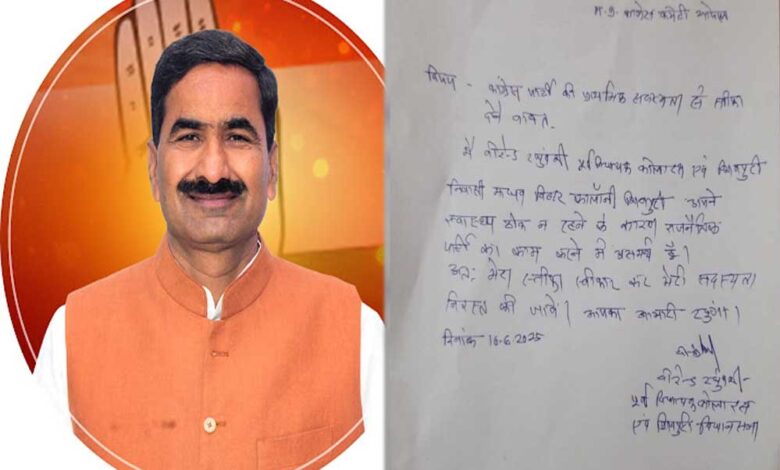 म.प्र. कांग्रेस कमेटी भोपाल
विषय - कांग्रेस पार्टी की प्राथमिक सदस्यता से स्तीफा
देने बावत.
मैं वीरेन्द्र रघुवंशी पूर्व विधायक कोलारस एवं शिवपुरी
निवासी माधव विहार कॉलोनी शिवपुरी अपने
स्वास्थ्य ठीक न रहने के कारण राजनैतिक
पार्टी का काम करने में असमर्थ हूँ।
अतः मेरा स्तीफा स्वीकार कर मेरी सदस्यता
निरस्त की जावे। आपका आभारी रहूंगा।
दिनांक 16.6.2025
वीरेन्द्र रघुवंशी
पूर्व विधायक कोलारस
एवं शिवपुरी विधानसभा